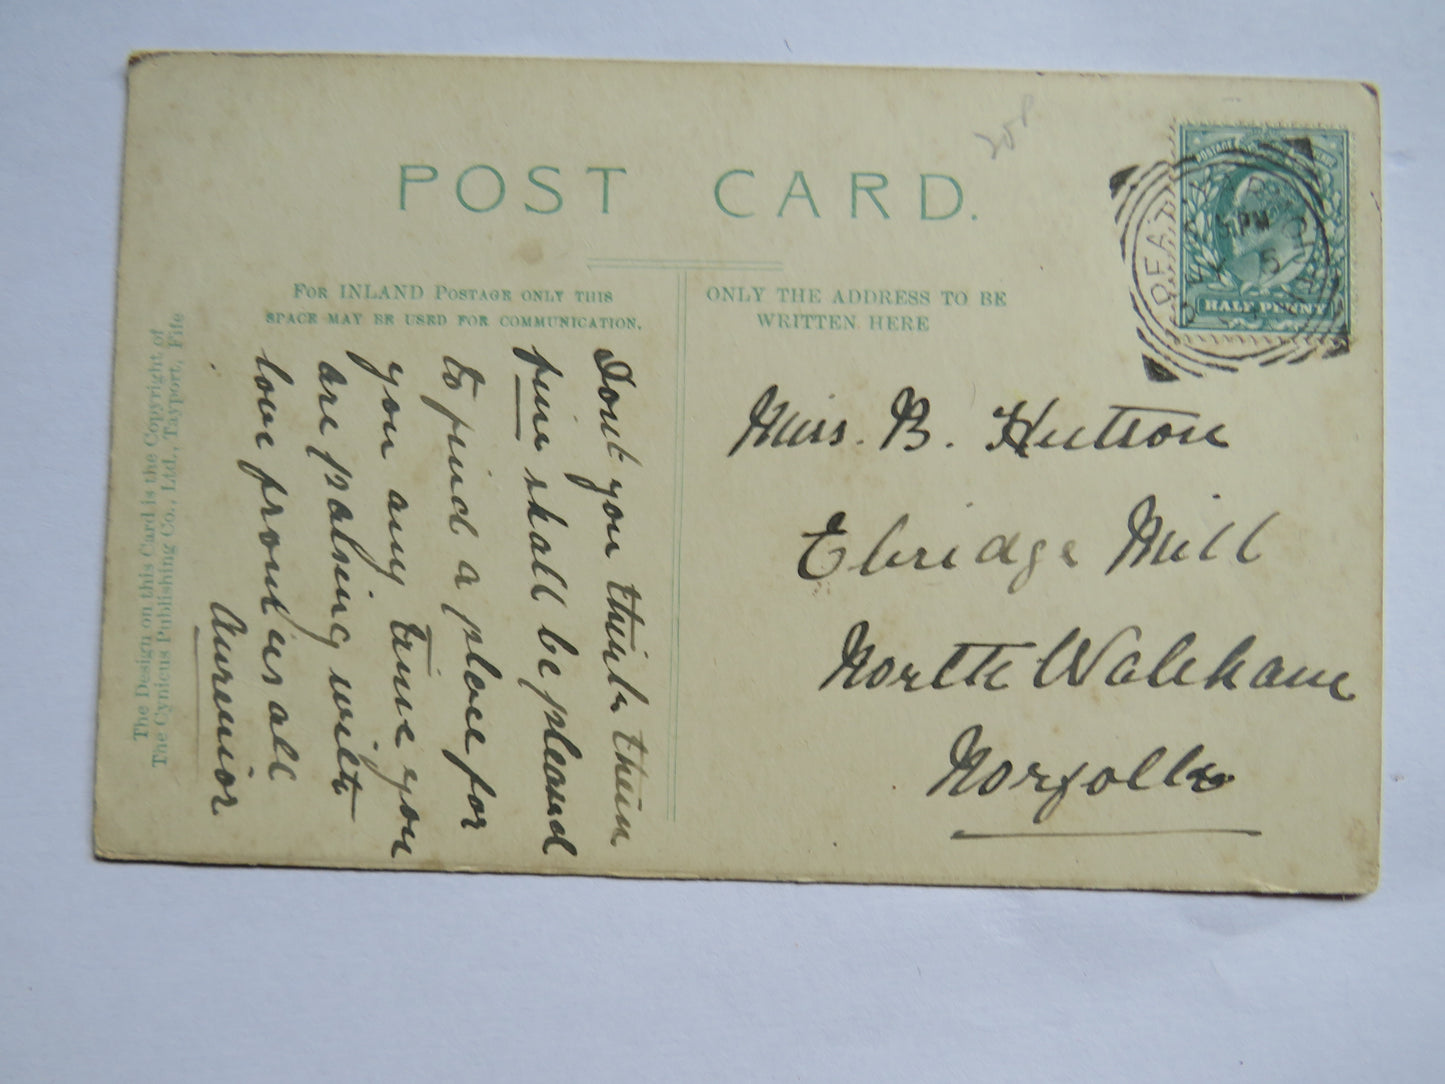 POST CARD.
FOR INLAND POSTAGE ONLY THIS
SPACE MAY BE USED FOR COMMUNICATION.
ONLY THE ADDRESS TO BE
WRITTEN HERE
The Design on this Card is the Copyright of
The Cynicus Publishing Co., Ltd., Tayport, Fife
Dont you think them
fine shall be pleased
to find a place for
you any time you
are paling with
love from us all
Miss. B. Hutson
Ebridge Mill
North Walsham
Norfolk
20P
POSTAGE
HALFPENNY
5 PM
5